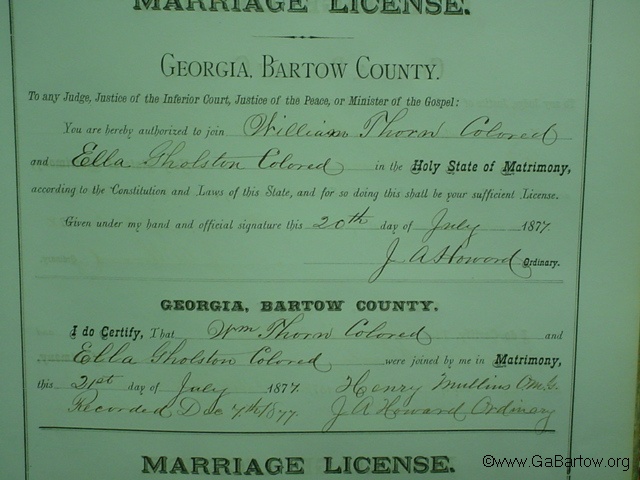 MARRIAGE LICENSE.
GEORGIA, BARTOW COUNTY.
To any Judge, Justice of the Inferior Court, Justice of the Peace, or Minister of the Gospel:
You are hereby authorized to join William Thorn Colored
and Ella Gholston Colored in the Holy State of Matrimony,
according to the Constitution and Laws of this State, and for so doing this shall be your sufficient License.
Given under my hand and official signature this 20th day of July 1877.
J A Howard Ordinary.
GEORGIA, BARTOW COUNTY.
I do Certify, That Wm Thorn Colored and
Ella Gholston Colored were joined by me in Matrimony,
this 21st day of July 1877. Henry Mullins
Recorded Dec 7th 1877. J A Howard Ordinary
MARRIAGE LICENSE.
©www.GaBartow.org